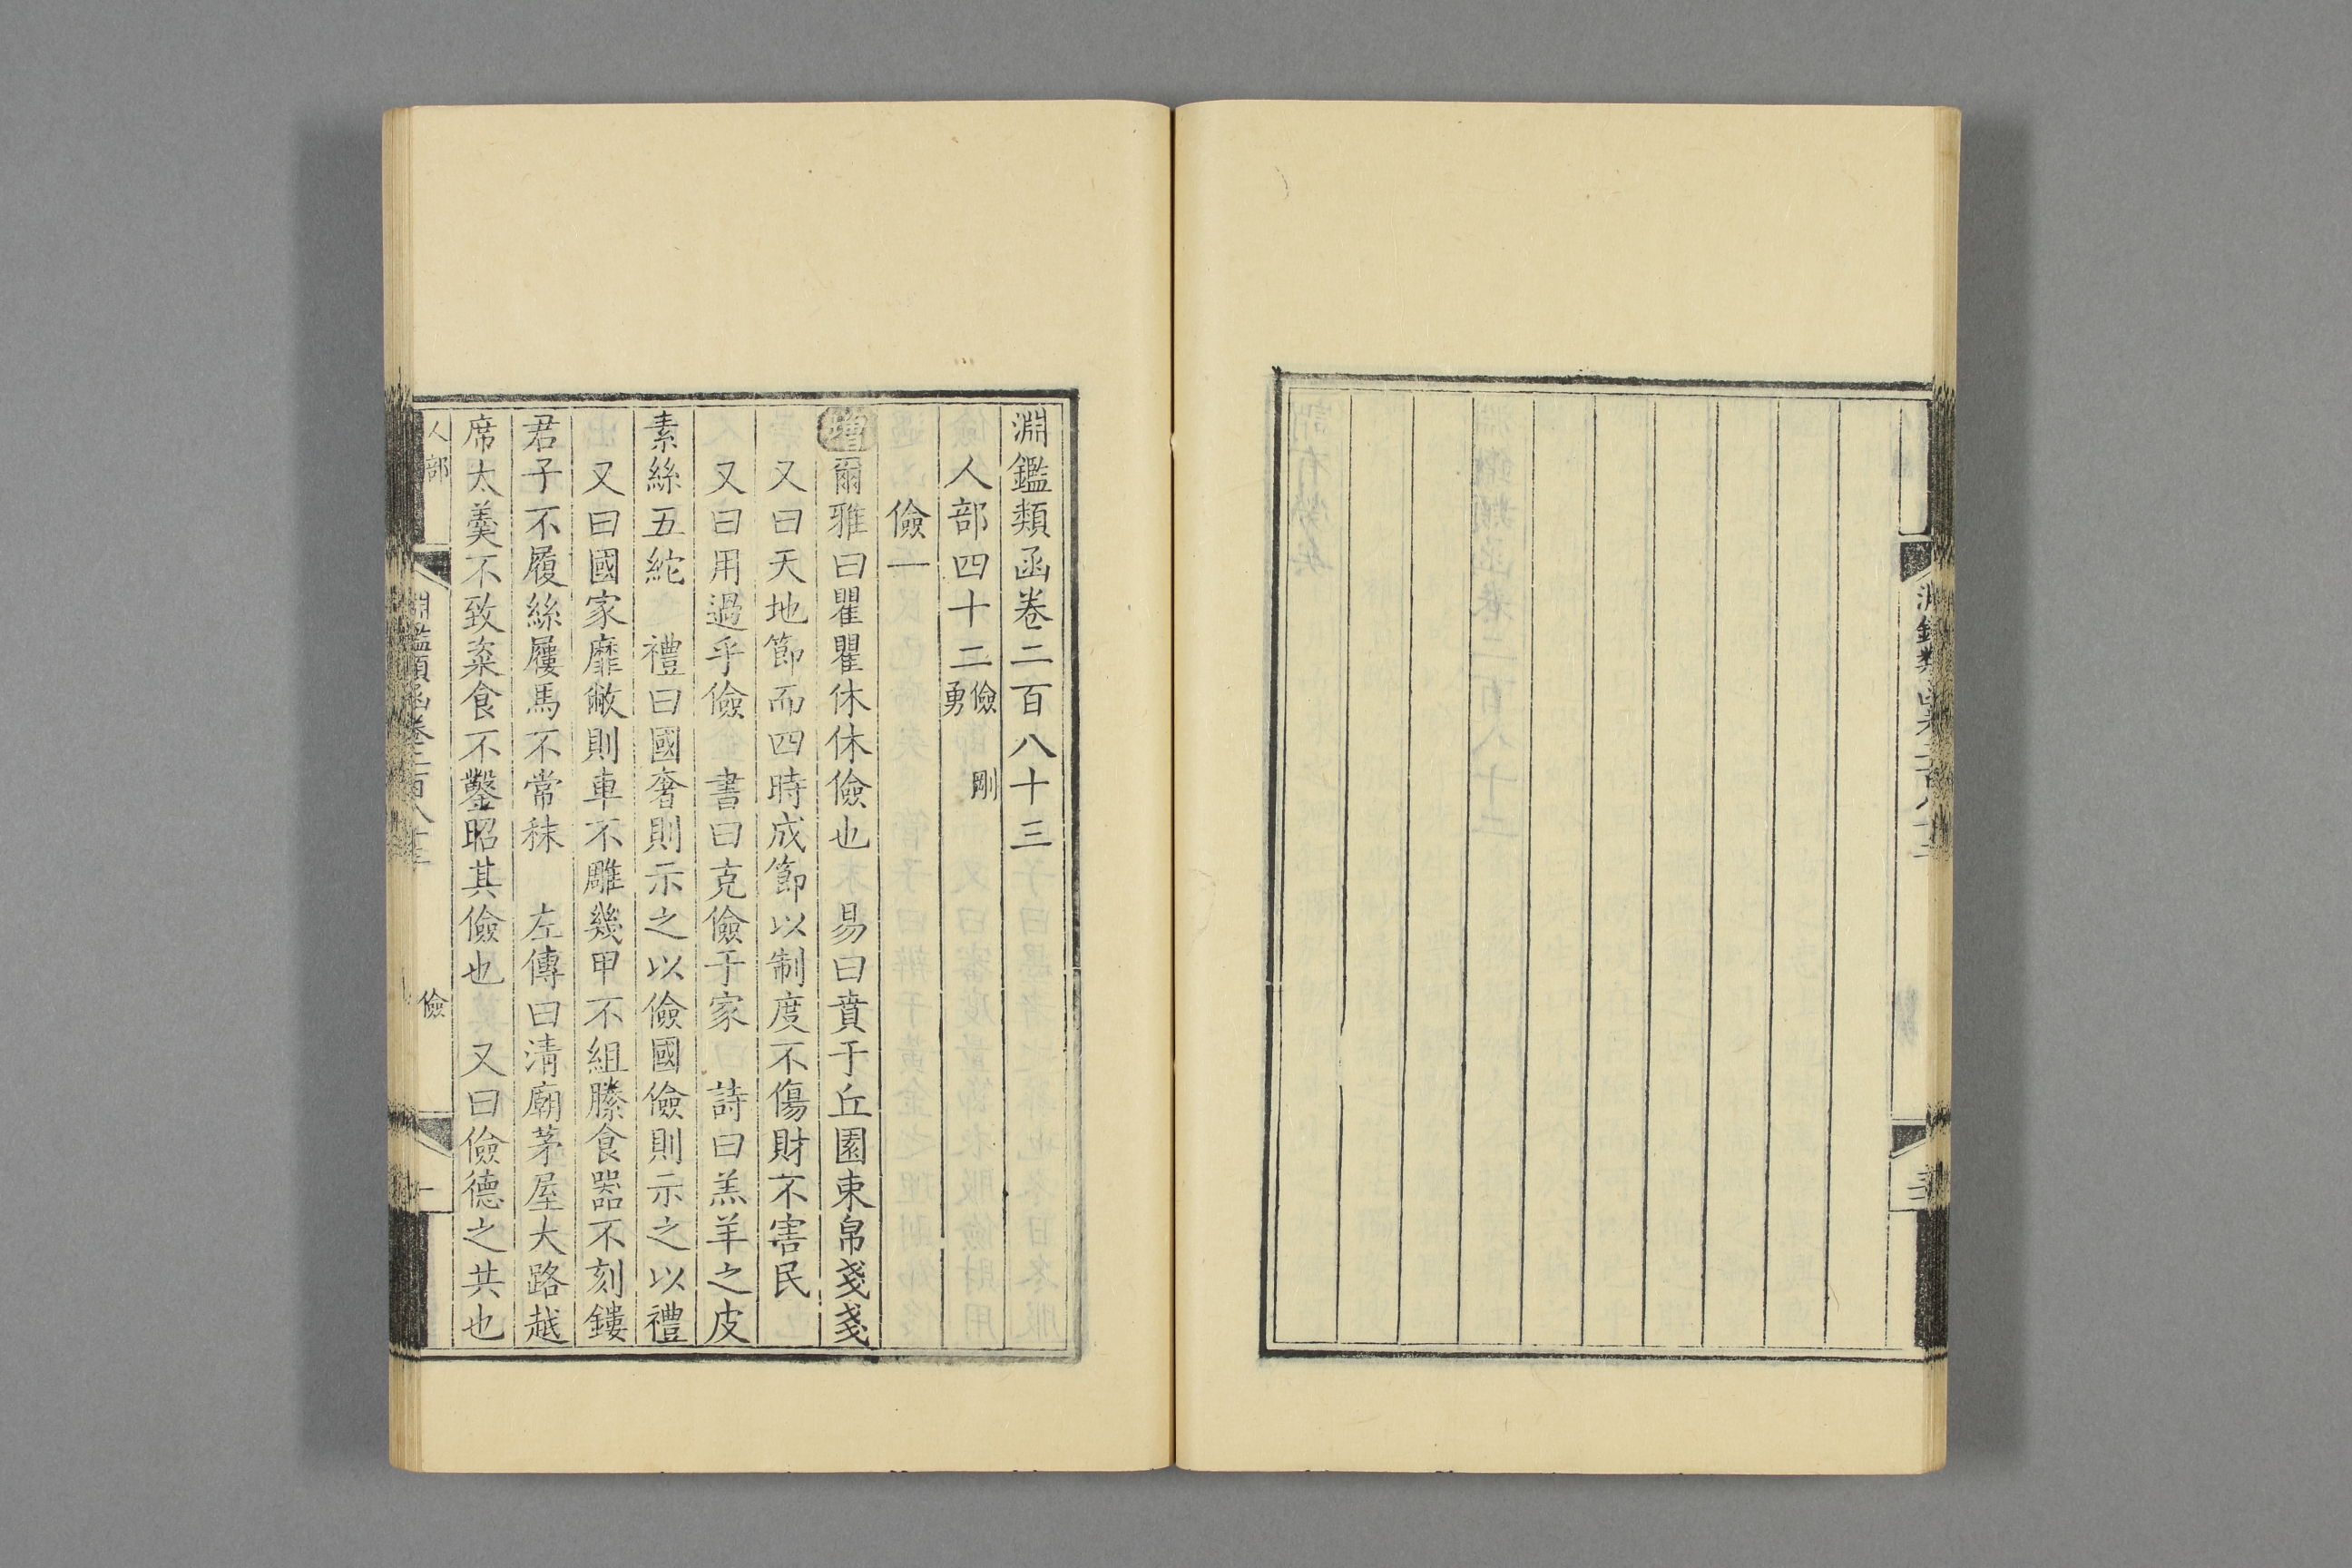 淵鑑類函卷二百八十三
人部四十二儉 剛
勇
儉一
增爾雅曰瞿瞿休休儉也 易曰賁于丘園束帛戔戔
又曰天地節而四時成節以制度不傷財不害民
又曰用過乎儉 書曰克儉于家 詩曰羔羊之皮
素絲五紽 禮曰國奢則示之以儉國儉則示之以禮
又曰國家靡敝則車不雕幾甲不組縢食器不刻鏤
君子不履絲屨馬不常秣 左傳曰清廟茅屋大路越
席太羹不致粢食不鑿昭其儉也 又曰儉德之共也
人部
淵鑑類函卷二百八十三
儉
一